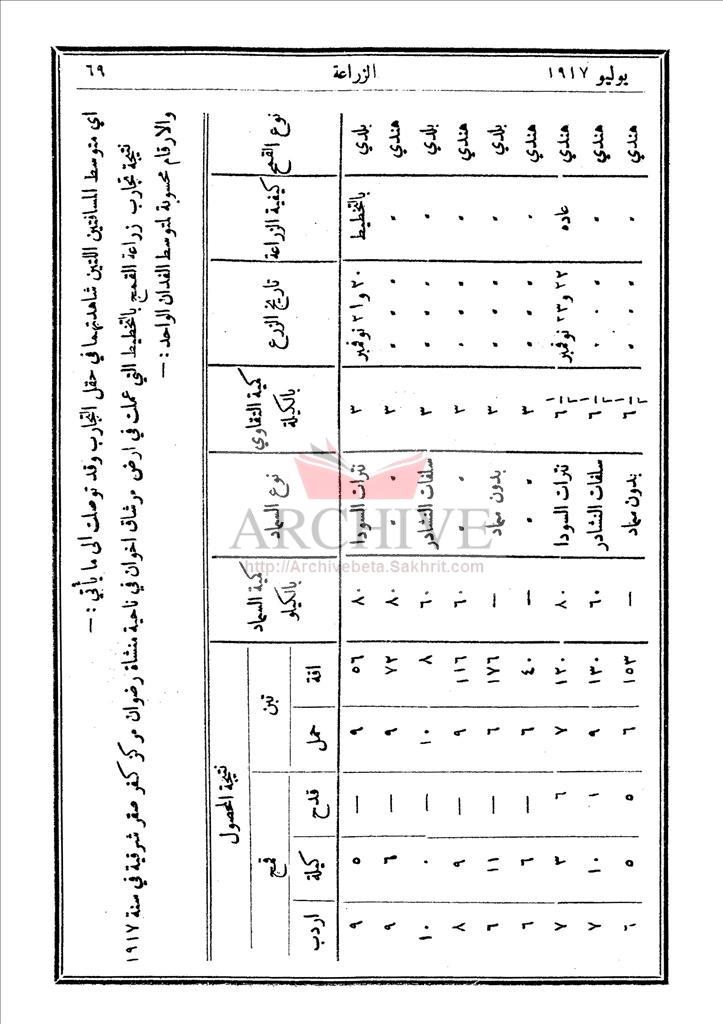 يوليو ١٩١٧
الزراعة
٦٩
اي متوسط المسافتين اللتين شاهدتهما في حقل التجارب وقد توصلت الى ما يأتي : —
نتيجة تجارب زراعة القمح بالتخطيط التي عملت في ارض مرشاق اخوان في ناحية منشاة رضوان مركز كفر صقر شرقية في سنة ١٩١٧
والارقام محسوبة لمتوسط الفدان الواحد : —
نوع القمح | كيفية الزراعة | تاريخ الزرع | كمية التقاوي بالكيلة | نوع السماد | كمية السماد بالكيلو | نتيجة المحصول
تبن | قمح
اقة | حمل | قدح | كيلة | اردب
بلدي | بالتخطيط | ٢٠ و ٢١ نوفمبر | ٣ | نترات السودا | ٨٠ | ٥٦ | ٩ | — | ٥ | ٩
هندي | » | » » » | ٣ | » » | ٨٠ | ٧٢ | ٩ | — | ٦ | ٩
بلدي | » | » » » | ٣ | سلفات النشادر | ٦٠ | ٨ | ١٠ | — | ٠ | ١٠
هندي | » | » » » | ٣ | » » | ٦٠ | ١١٦ | ٩ | — | ٩ | ٨
بلدي | » | » » » | ٣ | بدون سماد | — | ١٧٦ | ٦ | — | ١١ | ٦
هندي | » | » » » | ٣ | » » | — | ٤٠ | ٦ | — | ٦ | ٦
هندي | عاده | ٢٢ و ٢٣ نوفمبر | ٦ ١/٢ | نترات السودا | ٨٠ | ١٢٠ | ٧ | ٦ | ٣ | ٧
هندي | » | » » » | ٦ ١/٢ | سلفات النشادر | ٦٠ | ١٣٠ | ٩ | ١ | ١٠ | ٧
هندي | » | » » » | ٦ ١/٢ | بدون سماد | — | ١٥٣ | ٦ | ٥ | ٥ | ٦
ARCHIVE
http://Archivebeta.Sakhrit.com